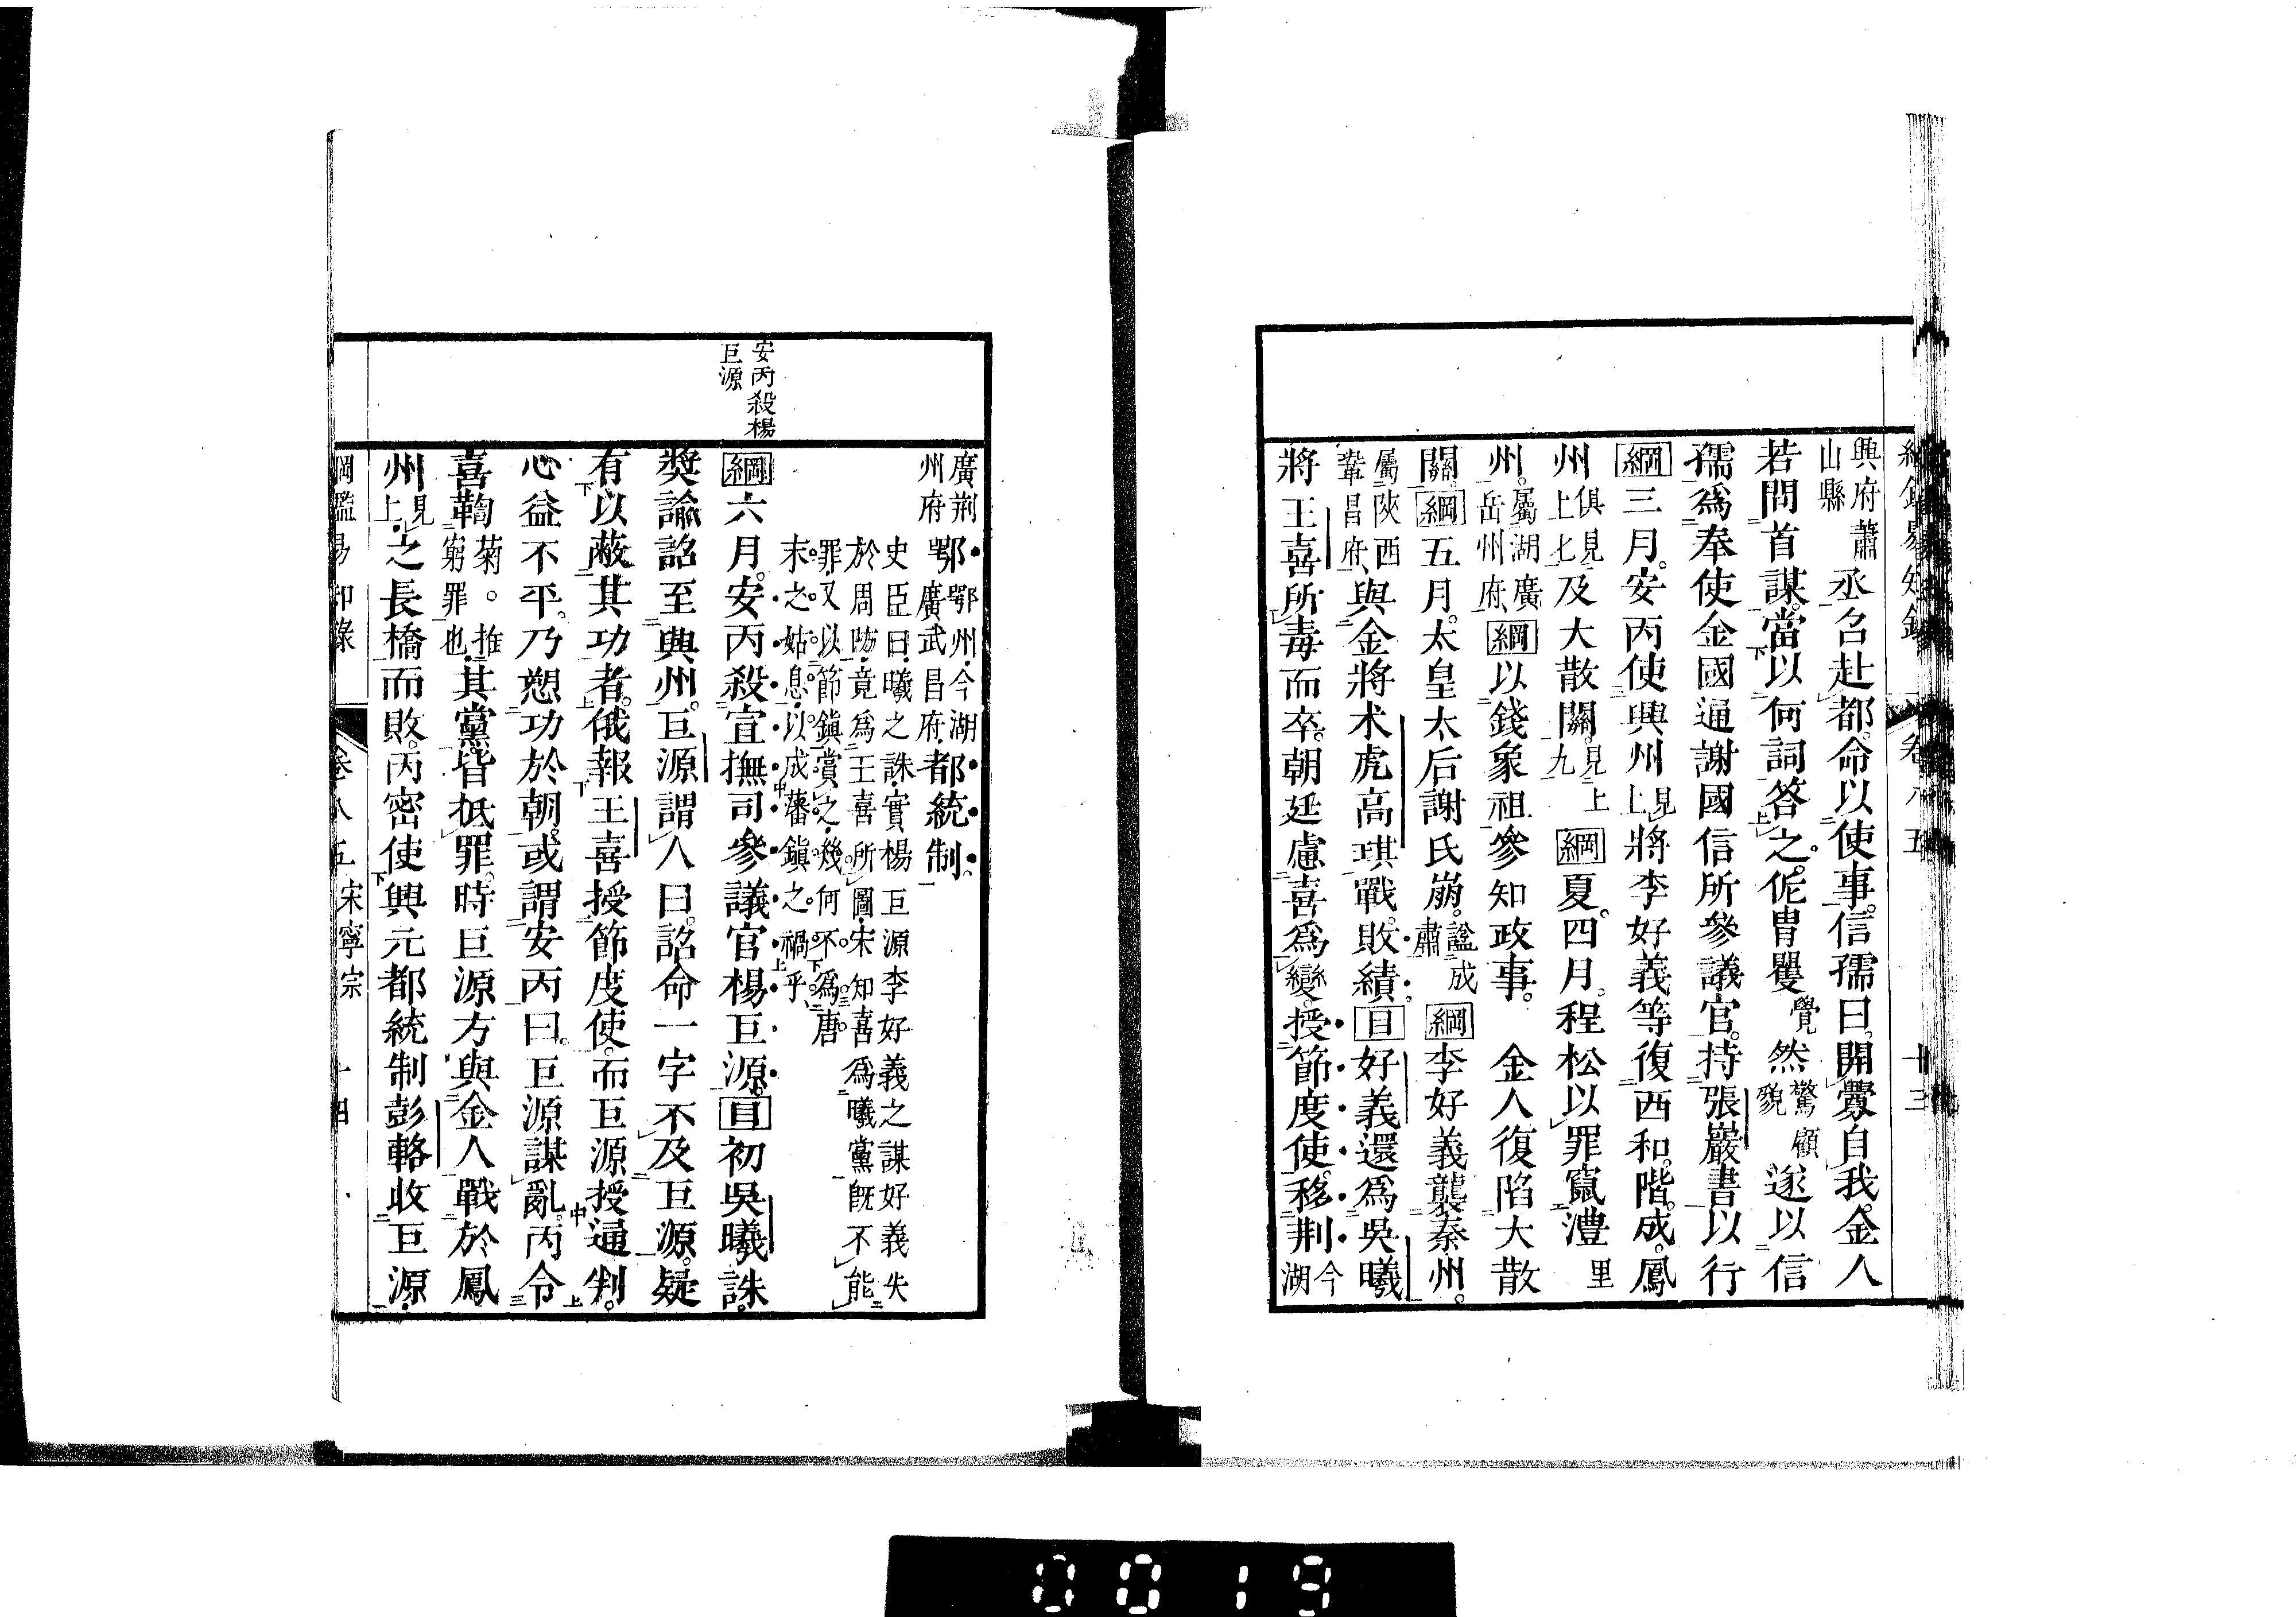 興府蕭
山縣
丞召赴都。命以使事。信孺曰。開釁自我。金人
若問首謀。當以何詞答之。侂胄矍
覺
然
驚顧
貌
遂以信
孺爲奉使金國通謝國信所參議官。持張巖書以行
綱三月。安丙使興州
見
上
將李好義等復西和。階。成。鳳
州
俱見
上七
及大散關。
見上
九
綱夏。四月。程松以罪竄澧
里
州。
屬湖廣
岳州府
綱以錢象祖參知政事。 金人復陷大散
關。綱五月。太皇太后謝氏崩。
謚成
肅
綱李好義襲秦州。
屬陝西
鞏昌府
與金將术虎高琪戰。敗績。目好義還爲吳曦
將王喜所毒而卒。朝廷慮喜爲變。授節度使。移荆
今
湖
廣荆
州府
鄂
鄂州今湖
廣武昌府
都統制。
史臣曰曦之誅實楊巨源李好義之謀好義失
於周防竟爲王喜所圖宋知喜爲曦黨旣不能
罪又以節鎭賞之幾何不爲唐
末之姑息以成藩鎭之禍乎
安丙殺楊
巨源
綱六月。安丙殺宣撫司參議官楊巨源。目初吳曦誅。
奬諭詔至興州。巨源謂人曰。詔命一字不及巨源。疑
有以蔽其功者。俄報王喜授節度使。而巨源授通判。
心益不平。乃愬功於朝。或謂安丙曰。巨源謀亂。丙令
喜鞫
菊。推
窮罪也
其黨皆抵罪。時巨源方與金人戰於鳳
州
見
上
之長橋而敗。丙密使興元都統制彭輅收巨源
綱鑑易知錄 卷八五 宋寧宗 十四